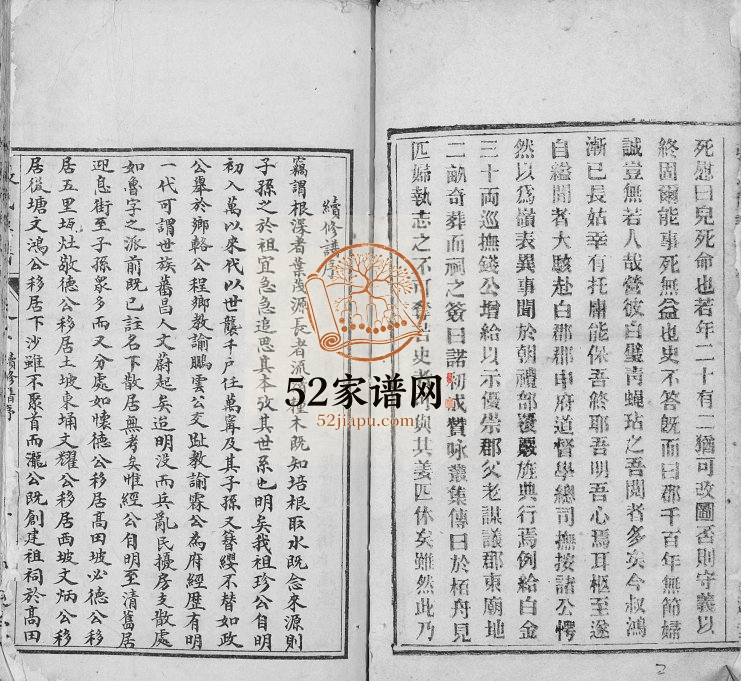 死慰曰兒死命也若年二十有二猶可改圖否則守義以
終固爾能事死無益也史不答既而曰郡千百年無節婦
誠豈無若人哉譬彼白璧青蠅玷之吾閱者多矣今叔鴻
漸已長姑幸有托庸能保吾終耶吾明吾心焉耳柩至遂
自縊聞者大駭赴白郡郡申府道督學總司撫按諸公愕
然以為嶺表異事聞於朝禮部覆嚴旌典行焉例給白金
三十両巡撫錢公增給以示優崇郡父老謀議郡東廟地
二畝奇葬而祠之簽曰諾初成贊咏叢集傳曰於栢舟見
匹婦執志之不可奪若史者可與其姜匹休矣雖然此乃
續修譜序
竊謂根深者葉茂源長者流 種木既知培根取水既念來源則
子孫之於祖宜急急追思其本攷其世系也明矣我祖珍公自明
初入萬以來代以世襲千戶任萬寧及其子孫又簪纓不替如政
公舉於鄉輅公程鄉教諭鵬雲公交趾教諭霖公為府經歷有明
一代可謂世族蕃昌人文蔚起矣迨明没而兵亂民擾房支散處
如魯字之派前既已註名下歡居無考矣惟經公自明至清舊居
迎恩街至子孫衆多而又分處如懷德公移居髙田坡必德公移
居五里坵灶敬德公移居土坡東埇文耀公移居西坡文炳公移
居後塘文鴻公移居下沙雖不聚首而瀧公既創建祖祠於髙田
續修譜序
52家谱网
52jiapu.com
2